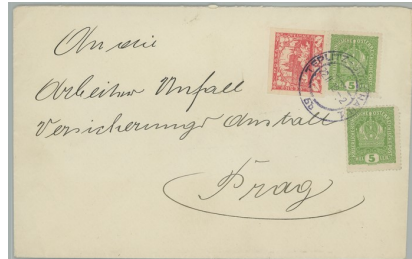 An die
Arbeiter Unfall
Versicherungs Anstalt
Prag
5
5